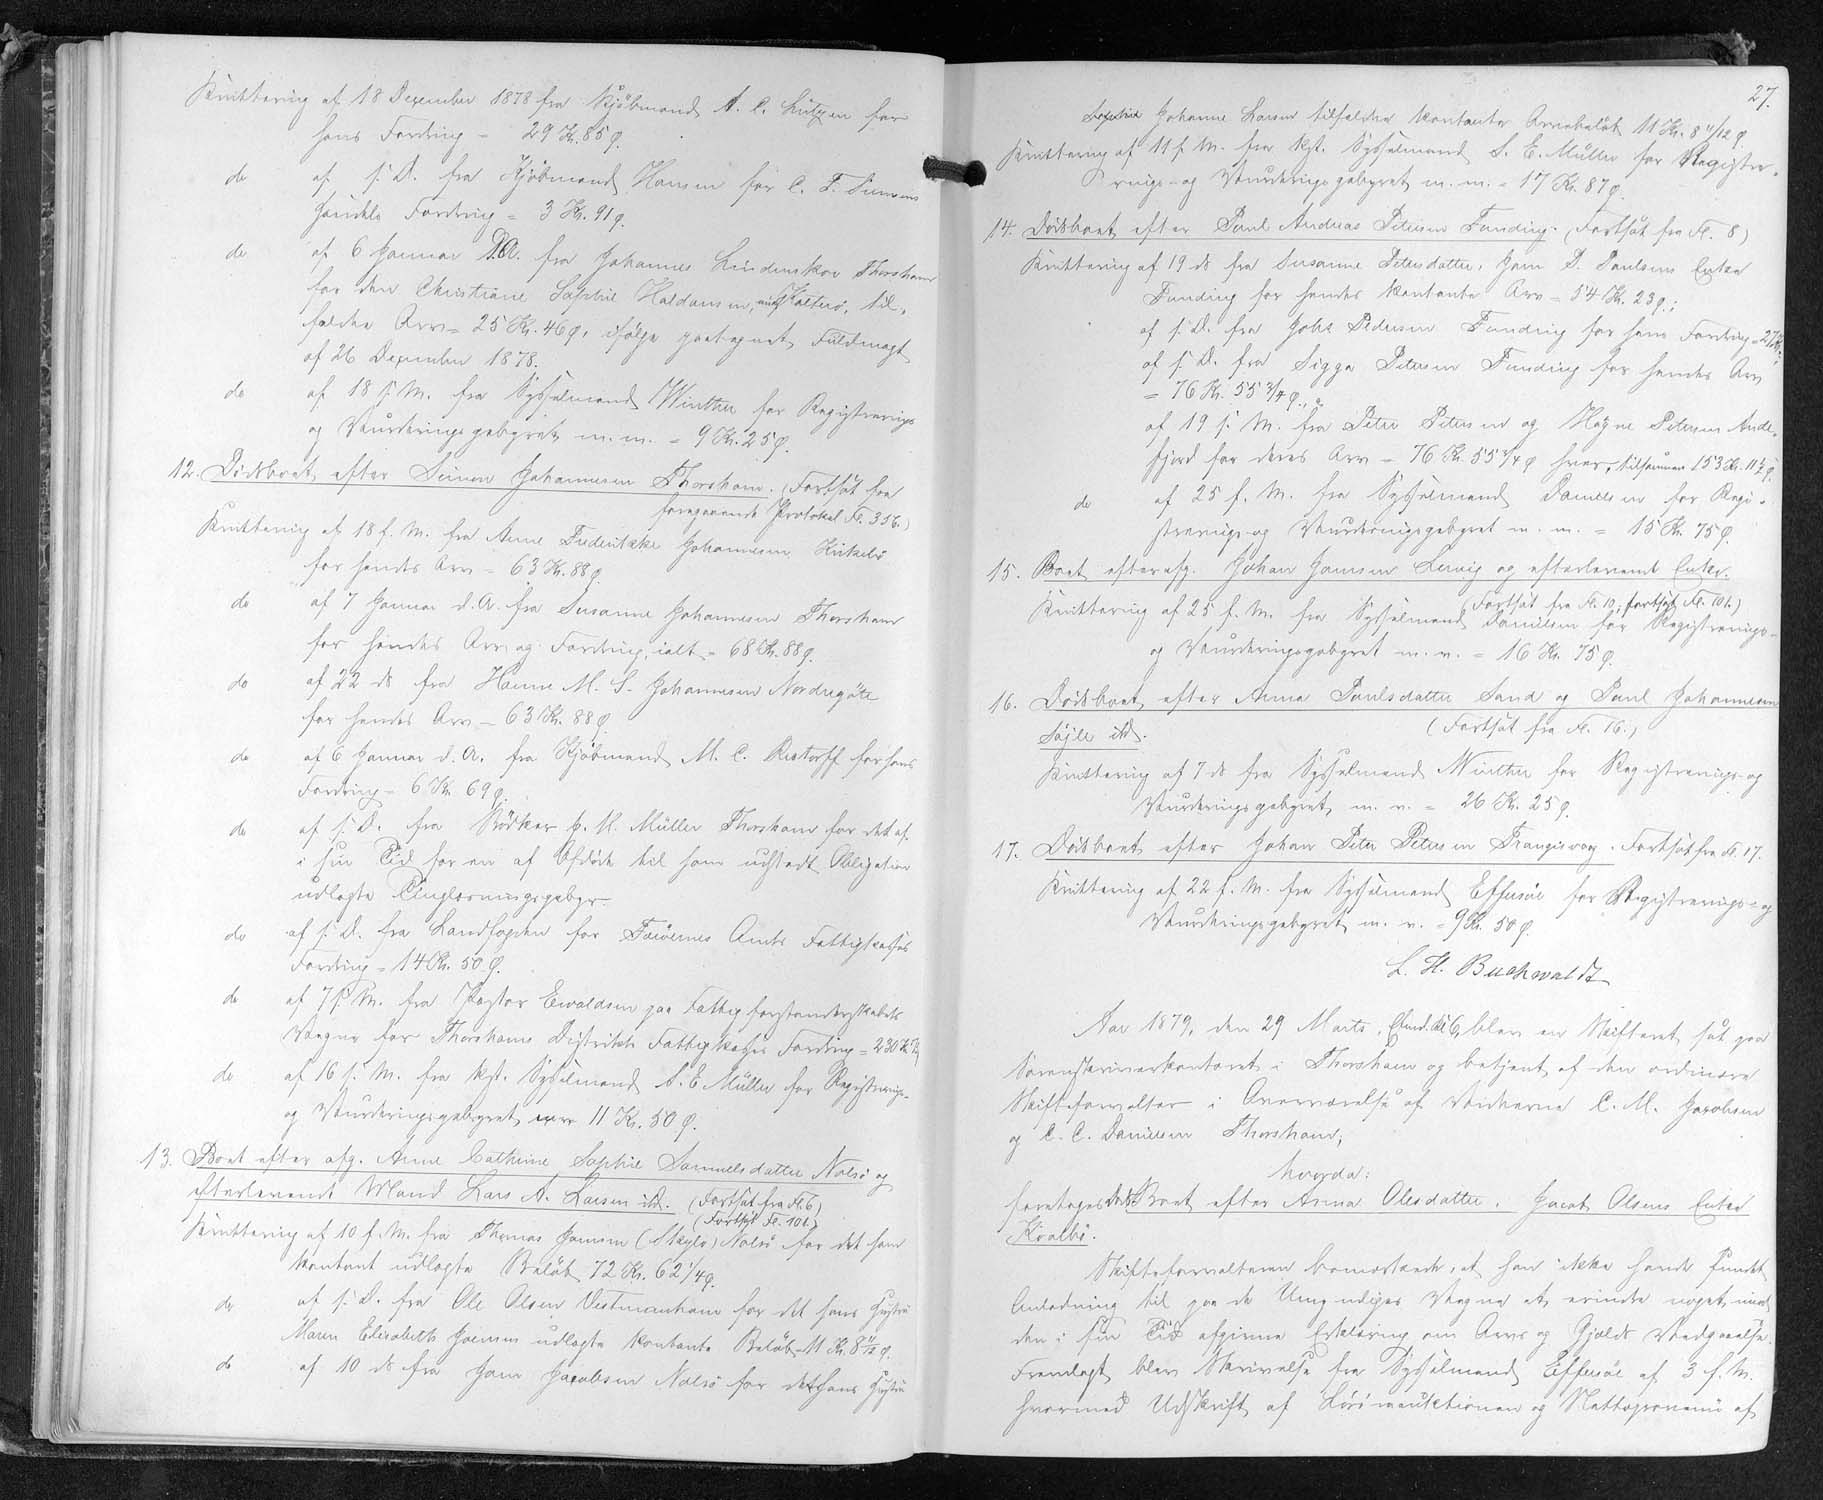 Kvittering af 18 Dezember 1878 fra Kjøbmand A. C. Lützen for
hans Fordring = 29 Kr. 85 Ø.
do af s. D. fra Kjøbmand Hansen for C. F. Simsens
Handels Fordring = 3 Kr. 91 Ø.
do af 6 Januar d.A. fra Johannes Lindenskov Thorshavn
for den Christiane Sophie Haldansen, Kalterö, til-
faldne Arv = 25 Kr. 46 Ø, ifölge Fuldmagt
af 26 Dezember 1878.
do af 18 f. M. fra Sysselmand Winther for Registrerings
og Vurderingsgebyret m. m. = 9 Kr. 25 Ø.
12. Dödsboet efter Simon Johannesen Thorshavn. (Fortsat fra
foregaaende Protokol Fl. 356.)
Kvittering af 18 f. M. fra Anne Frederikke Johannesen Kirkebö
for hendes Arv = 63 Kr. 88 Ø.
do af 7 Januar d. A. fra Susanne Johannesen Thorshavn
for hendes Arv og Fordring, ialt = 68 Kr. 88 Ø.
do af 22 ds fra Hanne M. S. Johannesen Nordregöte
for hendes Arv = 63 Kr. 88 Ø.
do af 6 Januar d. A. fra Kjøbmand M. C. Restorff for hans
Fordring = 6 Kr. 69 Ø.
do af s. D. fra Bödker H. M. Müller Thorshavn for det af
i sin Tid for en af Afdöde til ham udstedt Obligation
udlagte Tinglæsningsgebyr.
do af s. D. fra Landfogden for Færöernes Amts Fattigkasses
Fordring = 14 Kr. 50 Ø.
do af 7 f. M. fra Pastor Evaldsen paa Fattigforstanderskabets
Vegne for Thorshavns Distrikts Fattigkasses Fordring = 230 Kr.
do af 16 f. M. fra kst. Sysselmand S. E. Müller for Registrerings-
og Vurderingsgebyret 11 Kr. 50 Ø.
13. Boet efter afg. Anne Cathrine Sophie Samuelsdatter Nolsö og
efterlevende Mand Lars A. Larsen ibd. (Fortsat fra Fl. 6)
(Fortsat Fl. 101.)
Kvittering af 10 f. M. fra Thomas Joensen (Skyle) Nolsö for det ham
kontant udlagte Beløb 72 Kr. 62 1/4 Ø.
do af s. D. fra Ole Olsen Vestmanhavn for det hans Hustru
Maren Elisabeth Joensen udlagte kontante Beløb 11 Kr. 8 11/12 Ø.
do af 10 ds fra Joen Jacobsen Nolsö for det hans Hustru
27.
Sophie Johanne Larsen tilfaldne kontante Arvebeløb 11 Kr. 8 11/12 Ø.
Kvittering af 11 f. M. fra kst. Sysselmand S. E. Müller for Registre-
rings- og Vurderingsgebyret m. m. = 17 Kr. 87 Ø.
14. Dödsboet efter Poul Andreas Petersen Funding. (Fortsat fra Fl. 8)
Kvittering af 19 ds fra Susanne Petersdatter, Joen P. Poulsens Enke
Funding for hendes kontante Arv = 54 Kr. 23 Ø.;
af s. D. fra Pedersen Funding for hans Fordring = 27 Kr.
af s. D. fra Sigga Petersen Funding for hendes Arv
= 76 Kr. 55 3/4 Ø., &
af 19 f. M. fra Peter Petersen og Petersen Ande-
fjord for deres Arv = 76 Kr. 55 3/4 Ø hver, tilsammen 153 Kr. 11 1/2 Ø.
do af 25 f. M. fra Sysselmand Danielsen for Regi-
strerings- og Vurderingsgebyret m. m. = 15 Kr. 75 Ø.
15. Boet efter afg. Johan Joensen Lervig og efterlevende Enke.
(Fortsat fra Fl. 10, fortsat Fl. 101.)
Kvittering af 25 f. M. fra Sysselmand Danielsen for Registrerings-
og Vurderingsgebyret m. v. = 16 Kr. 75 Ø.
16. Dödsboet efter Anna Poulsdatter Sand og Poul Johannesen
Söjle ibd. (Fortsat fra Fl. 16.)
Kvittering af 7 ds fra Sysselmand Winther for Registrerings- og
Vurderingsgebyret m. v. = 26 Kr. 25 Ø.
17. Dödsboet efter Johan Peter Petersen Trangisvaag. Fortsat fra Fl. 17.
Kvittering af 22 f. M. fra Sysselmand Effersöe for Registrerings- og
Vurderingsgebyret m. v. = 9 Kr. 50 Ø.
L. H. Buchwaldt
Aar 1879, den 29 Marts, Eftmd. Kl. 6, blev en Skifteret sat paa
Sorenskriverkontoret i Thorshavn og betjent af den ordinære
Skifteforvalter i Overværelse af Vidnerne C. M. Jacobsen
og C. C. Danielsen Thorshavn;
hvorda:
foretoges Dödsboet efter Anna Olesdatter, Jacob Olsens Enke
Kvalbö.
Skifteforvalteren bemærkede, at han ikke havde fundet
Anledning til paa de Umyndiges Vegne at erindre noget imod
den i sin Tid afgivne Erklæring om Arvs og Gjælds Vedgaaelse.
Fremlagt blev Skrivelse fra Sysselmand Effersöe af 3 f. M.
hvormed Udskrift af Lösöreauktionen og Nettoprovenü af